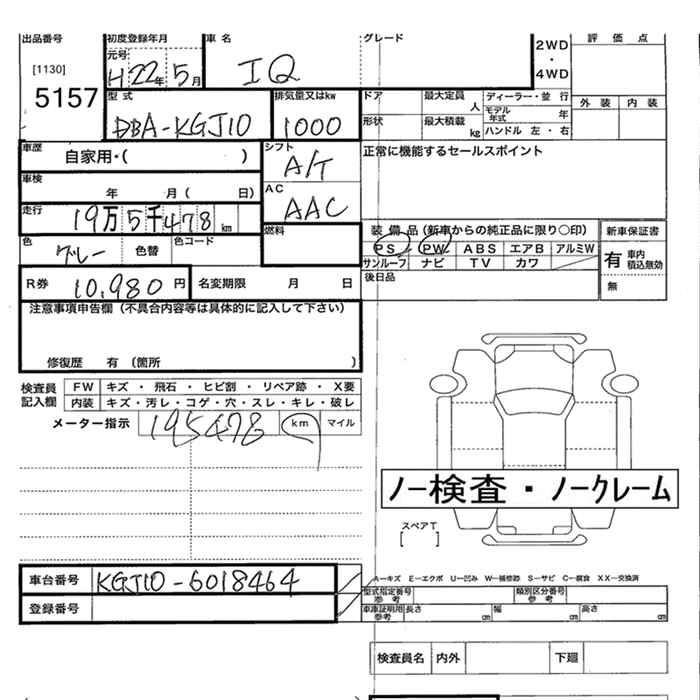 出品番号 初度登録年月 車名 グレード 2WD・4WD 評価点
[1130] 元号 H22年5月 IQ
5157 型式 排気量又はkw ドア 最大定員 人 ディーラー・並行 外装 内装
DBA-KGJ10 1000 形状 最大積載 kg モデル年式 年
ハンドル 左・右
車歴 自家用・( ) シフト A/T 正常に機能するセールスポイント
車検 年 月( 日) AC AAC
走行 19万5千478km 燃料 装備品(新車からの純正品に限り○印) 新車保証書
色 グレー 色替 色コード PS PW ABS エアB アルミW 有 車内積込無効
サンルーフ ナビ TV カワ 無
R券 10,980円 名変期限 月 日 後日品
注意事項申告欄(不具合内容等は具体的に記入して下さい)
修復歴 有(箇所 )
検査員記入欄 FW キズ・飛石・ヒビ割・リペア跡・X要
内装 キズ・汚レ・コゲ・穴・スレ・キレ・破レ
メーター指示 195478 km マイル
ノー検査・ノークレーム
スペアT
[ ]
車台番号 KGJ10-6018464 A-キズ E-エクボ U-凹み W-補修跡 S-サビ C-腐食 XX-交換済
登録番号 型式指定番号 参考 類別区分番号 参考
車庫証明用 参考 長さ cm 幅 cm 高さ cm
検査員名 内外 下廻